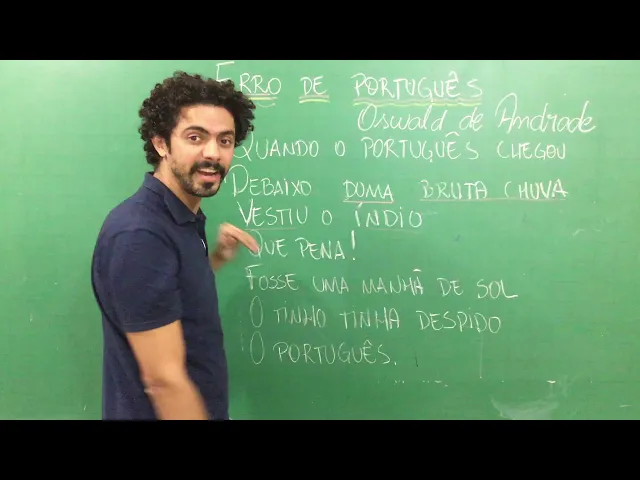 ERRO DE PORTUGUÊS
Oswald de Andrade
QUANDO O PORTUGUÊS CHEGOU
DEBAIXO DUMA BRUTA CHUVA
VESTIU O ÍNDIO
QUE PENA!
FOSSE UMA MANHÃ DE SOL
O TINHO TINHA DESPIDO
O PORTUGUÊS.